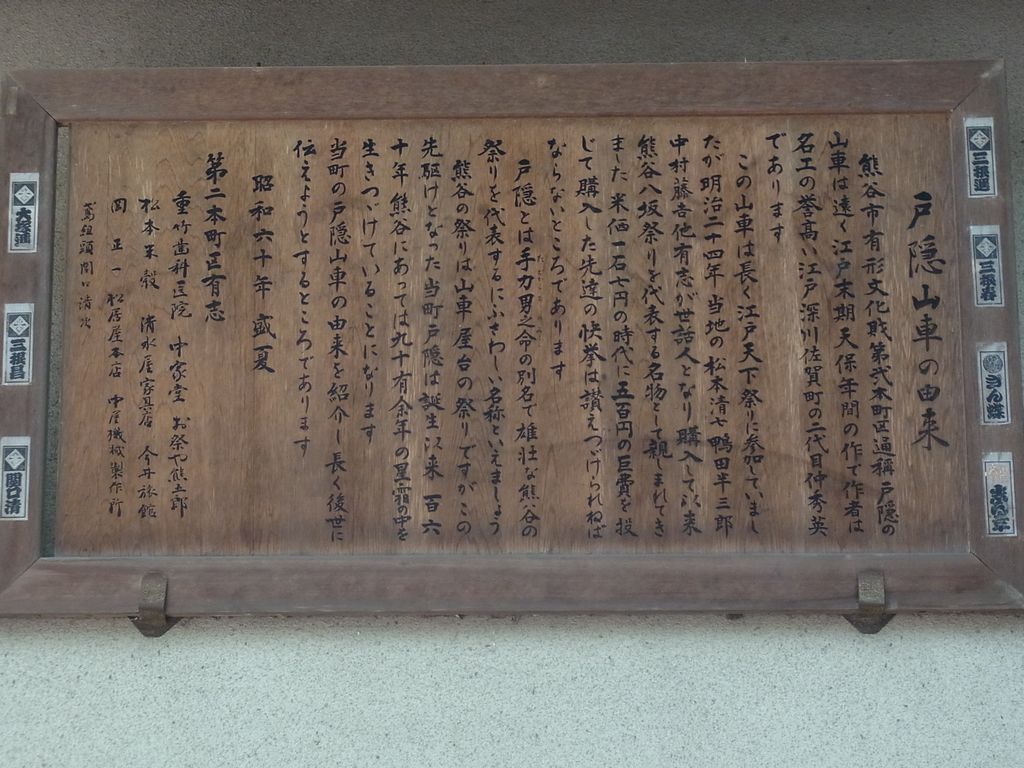 戸隠山車の由来
熊谷市有形文化財第弐本町区通稱戸隠の
山車は遠く江戸末期天保年間の作で作者は
名工の誉高い江戸深川佐賀町の二代目仲秀英
であります
この山車は長く江戸天下祭りに参加していまし
たが明治二十四年当地の松本清七鴨田半三郎
中村藤吉他有志が世話人となり購入して以来
熊谷八坂祭りを代表する名物として親しまれてき
ました米価一石七円の時代に五百円の巨費を投
じて購入した先達の快挙は讃えつづけられねば
ならないところであります
戸隠とは手力男之命の別名で雄壮な熊谷の
祭りを代表するにふさわしい名称といえましょう
熊谷の祭りは山車屋台の祭りですがこの
先駆けとなった当町戸隠は誕生以来百六
十年熊谷にあっては九十有余年の星霜の中を
生きつづけていることになります
当町の戸隠山車の由来を紹介し長く後世に
伝えようとするところであります
昭和六十年盛夏
第二本町区有志
重竹歯科医院 中家堂 お祭や熊五郎
松本米穀 清水屋家具店 今井旅館
岡正一 松居屋本店 中屋機械製作所
鳶組頭関口清次
三根進
三根春
きん蝶
大塚進
三根昌
関口清